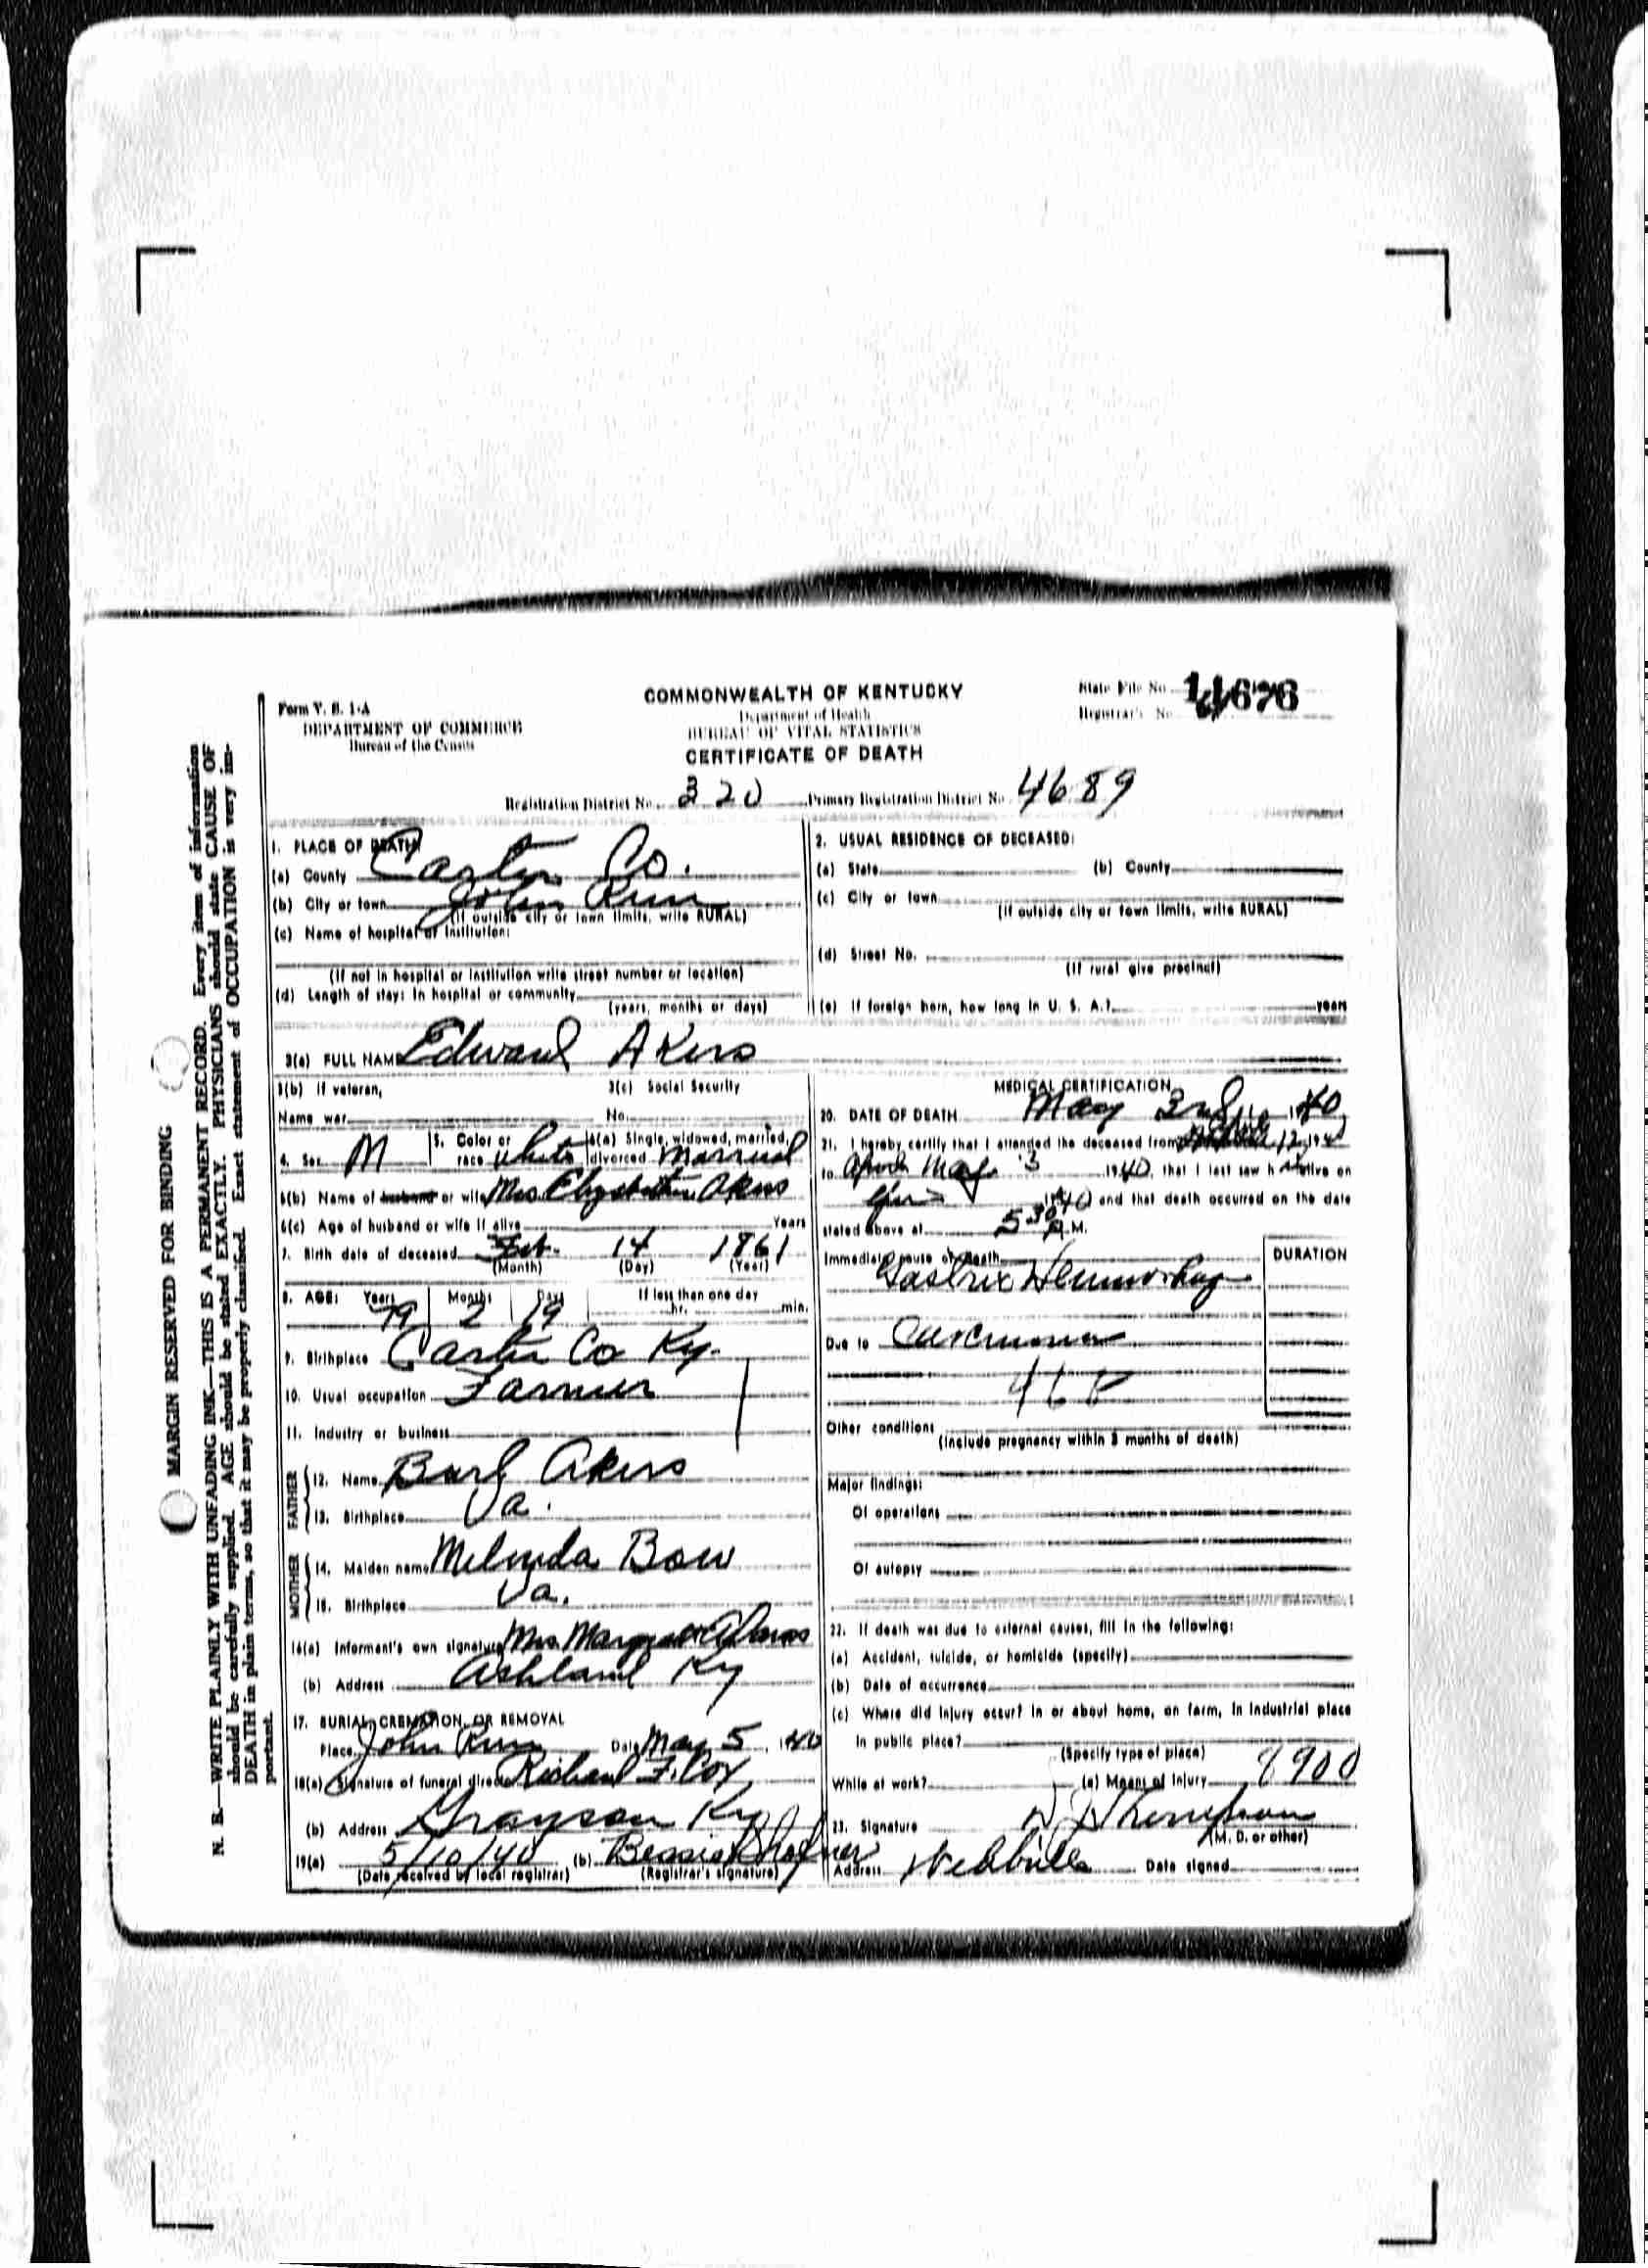 Form V. S. 1-A
DEPARTMENT OF COMMERCE
Bureau of the Census
COMMONWEALTH OF KENTUCKY
Department of Health
BUREAU OF VITAL STATISTICS
CERTIFICATE OF DEATH
State File No.
Registrar's No.
Registration District No. 320 Primary Registration District No. 4689
MARGIN RESERVED FOR BINDING
N. B.—WRITE PLAINLY WITH UNFADING INK—THIS IS A PERMANENT RECORD. Every item of information
should be carefully supplied. AGE should be stated EXACTLY. PHYSICIANS should state CAUSE OF
DEATH in plain terms, so that it may be properly classified. Exact statement of OCCUPATION is very im-
portant.
1. PLACE OF DEATH
(a) County Carter Co.
(b) City or town John Run
(If outside city or town limits, write RURAL)
(c) Name of hospital or institution:
(If not in hospital or institution write street number or location)
(d) Length of stay: In hospital or community
(years, months or days)
2. USUAL RESIDENCE OF DECEASED:
(a) State (b) County
(c) City or town
(If outside city or town limits, write RURAL)
(d) Street No.
(If rural give precinct)
(e) If foreign born, how long in U. S. A.? years
3(a) FULL NAME Edward Akers
3(b) If veteran, 3(c) Social Security
Name war No.
4. Sex M 5. Color or race White 6(a) Single, widowed, married, divorced Married
6(b) Name of husband or wife Mrs Akers
6(c) Age of husband or wife if alive Years
7. Birth date of deceased Feb. 14 1861
(Month) (Day) (Year)
8. AGE: Years Months Days If less than one day
79 2 19 hr. min.
9. Birthplace Carter Co Ky.
10. Usual occupation Farmer
11. Industry or business
FATHER
12. Name Burl Akers
13. Birthplace Va.
MOTHER
14. Maiden name Melinda Bow
15. Birthplace Va.
16(a) Informant's own signature Mrs. Margaret
(b) Address Ashland Ky
17. BURIAL, CREMATION, OR REMOVAL
Place John Run Date May 5, 1940
18(a) Signature of funeral director Richard F. Cox
(b) Address Grayson Ky
19(a) 5/10/40 (b) Bessie
(Date received by local registrar) (Registrar's signature)
MEDICAL CERTIFICATION
20. DATE OF DEATH May 3rd 1940
21. I hereby certify that I attended the deceased from 12 1940
to May 3 1940, that I last saw h alive on
1940 and that death occurred on the date
stated above at 5 30 A.M.
Immediate cause of death DURATION
Gastric Hemorrhag
Due to Carcinoma
46
Other conditions
(Include pregnancy within 3 months of death)
Major findings:
Of operations
Of autopsy
22. If death was due to external causes, fill in the following:
(a) Accident, suicide, or homicide (specify)
(b) Date of occurrence
(c) Where did injury occur? In or about home, on farm, in industrial place
in public place?
(Specify type of place)
While at work? (e) Means of Injury 8900
23. Signature Thompson
(M. D. or other)
Address Webbville Date signed